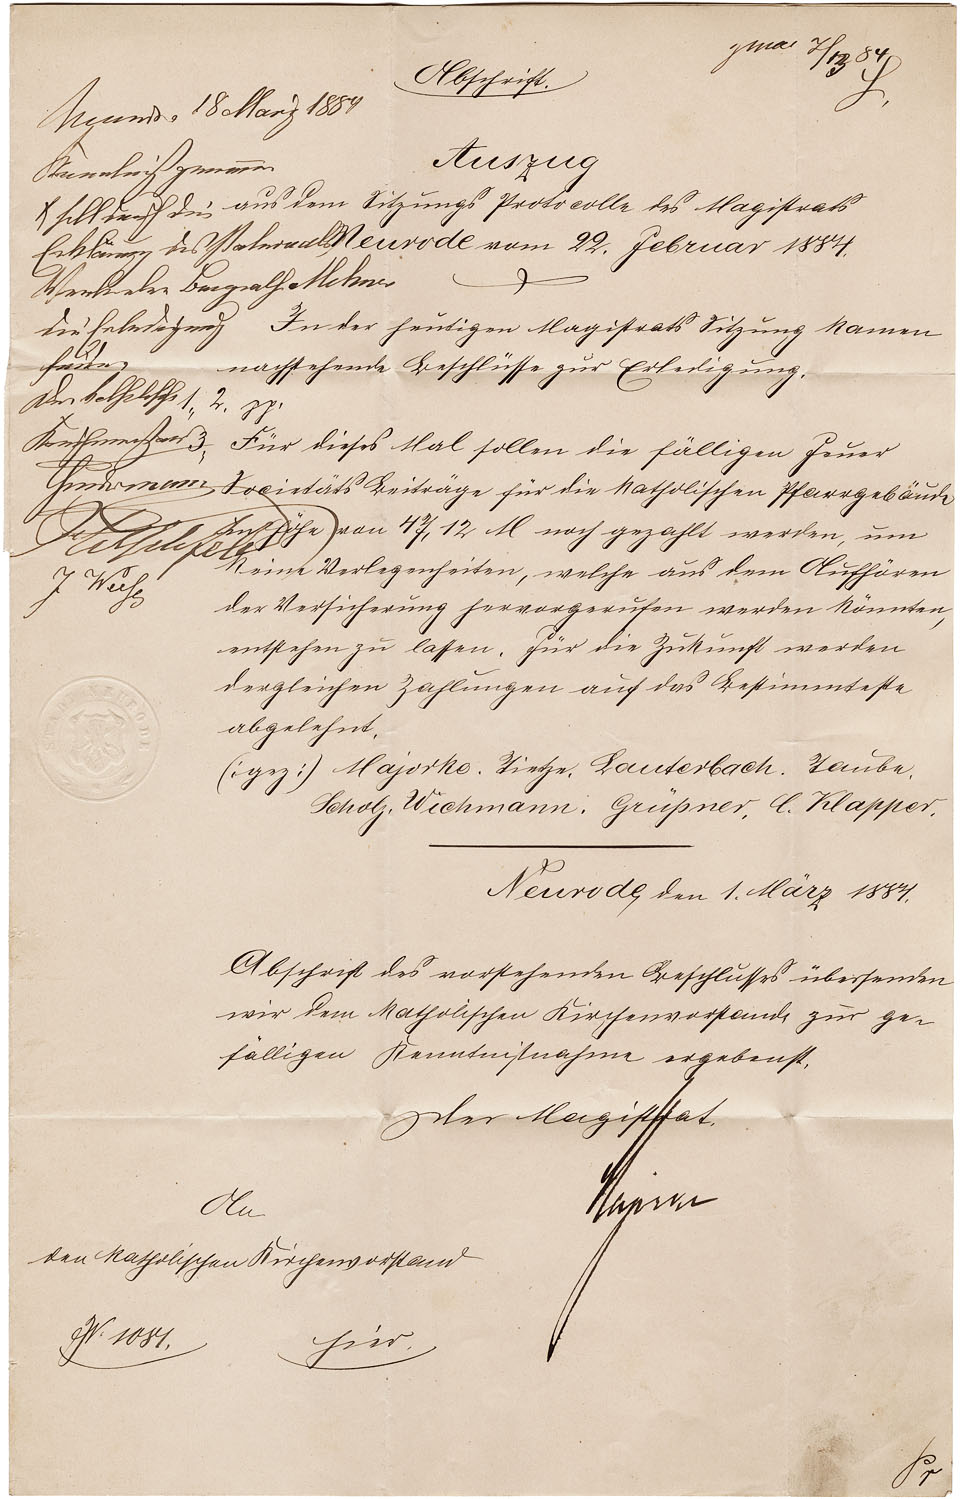 Abschrift.
7/3 84
18 März 1884
Auszug
aus dem Sitzungs Protocolle des Magistrats
Neurode vom 22. Februar 1884.
In der heutigen Magistrats Sitzung kamen
nachstehende Beschlüsse zur Erledigung.
1, 2. pp.
3, Für dieses Mal sollen die fälligen Feuer
Societäts Beiträge für die katholischen Pfarrgebäude
in Höhe von 47,12 M noch gezahlt werden, um
keine Verlegenheiten, welche aus dem Aufhören
der Versicherung hervorgerufen werden könnten,
entstehen zu lassen. Für die Zukunft werden
dergleichen Zahlungen auf das Bestimmteste
abgelehnt.
(:gez:) Majorke. Tietze. Lauterbach. Taube.
Scholz. Wichmann. Grüßner, C. Klapper.
Neurode, den 1. März 1884.
Abschrift des vorstehenden Beschlusses übersenden
wir dem katholischen Kirchenvorstande zur ge-
fälligen Kenntnißnahme ergebenst.
Der Magistrat.
An
den katholischen Kirchenvorstand
N. 1081.
hier.